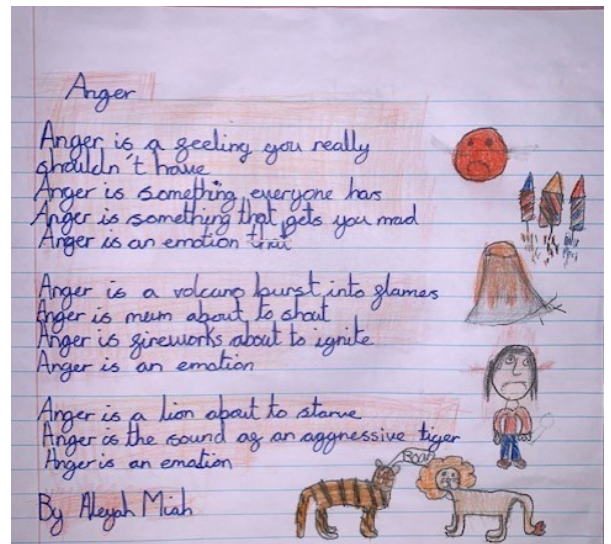 Anger
Anger is a feeling you really
shouldn't have
Anger is something everyone has
Anger is something that gets you mad
Anger is an emotion
Anger is a volcano burst into flames
Anger is mum about to shout
Anger is fireworks about to ignite
Anger is an emotion
Anger is a lion about to starve
Anger is the sound of an aggressive tiger
Anger is an emotion
By Aleyah Miah